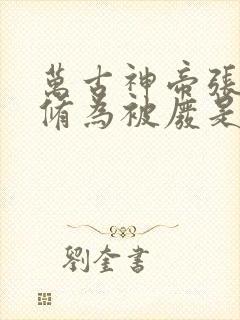 萬古神帝張
脩為被廢是
劉奎書